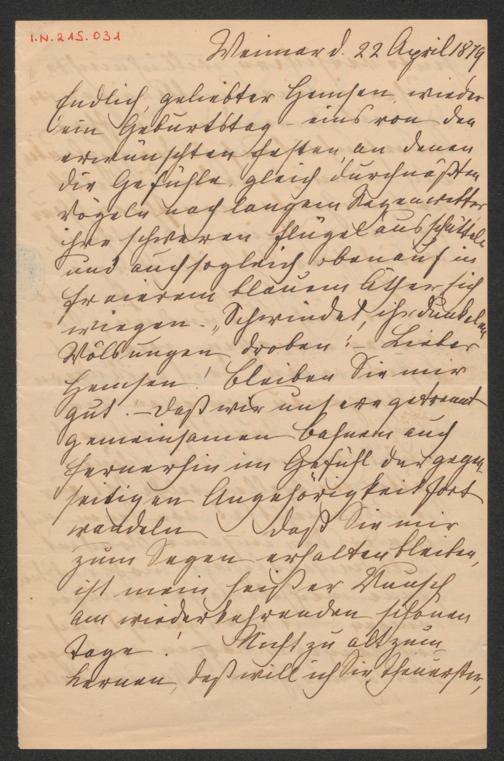 I.N. 215.031
Weimar d. 22 April 1879
Endlich, geliebter Hemsen, wieder
ein Geburtstag – eins von den
erwünschten Festen, an denen
die Gefühle gleich durchnäßten
Vögeln nach langem Regenwetter
ihre schweren Flügel ausschütteln
und auch sogleich obenauf in
freierem blauem Äther sich
wiegen. „Schwindet, ihr dunkeln
Wölbungen droben! – Lieber
Hemsen! bleiben Sie mir
gut. – Daß wir unsere getrennt
gemeinsamen Bahnen auch
fernerhin im Gefühl der gegen
seitigen Angehörigkeit fort
wandeln daß Sie mir
zum Segen erhalten bleiben,
ist mein heißer Wunsch
am wiederkehrenden schönen
Tage! – Nicht zu alt zum
Lernen, daß will ich Sie, theuerster,